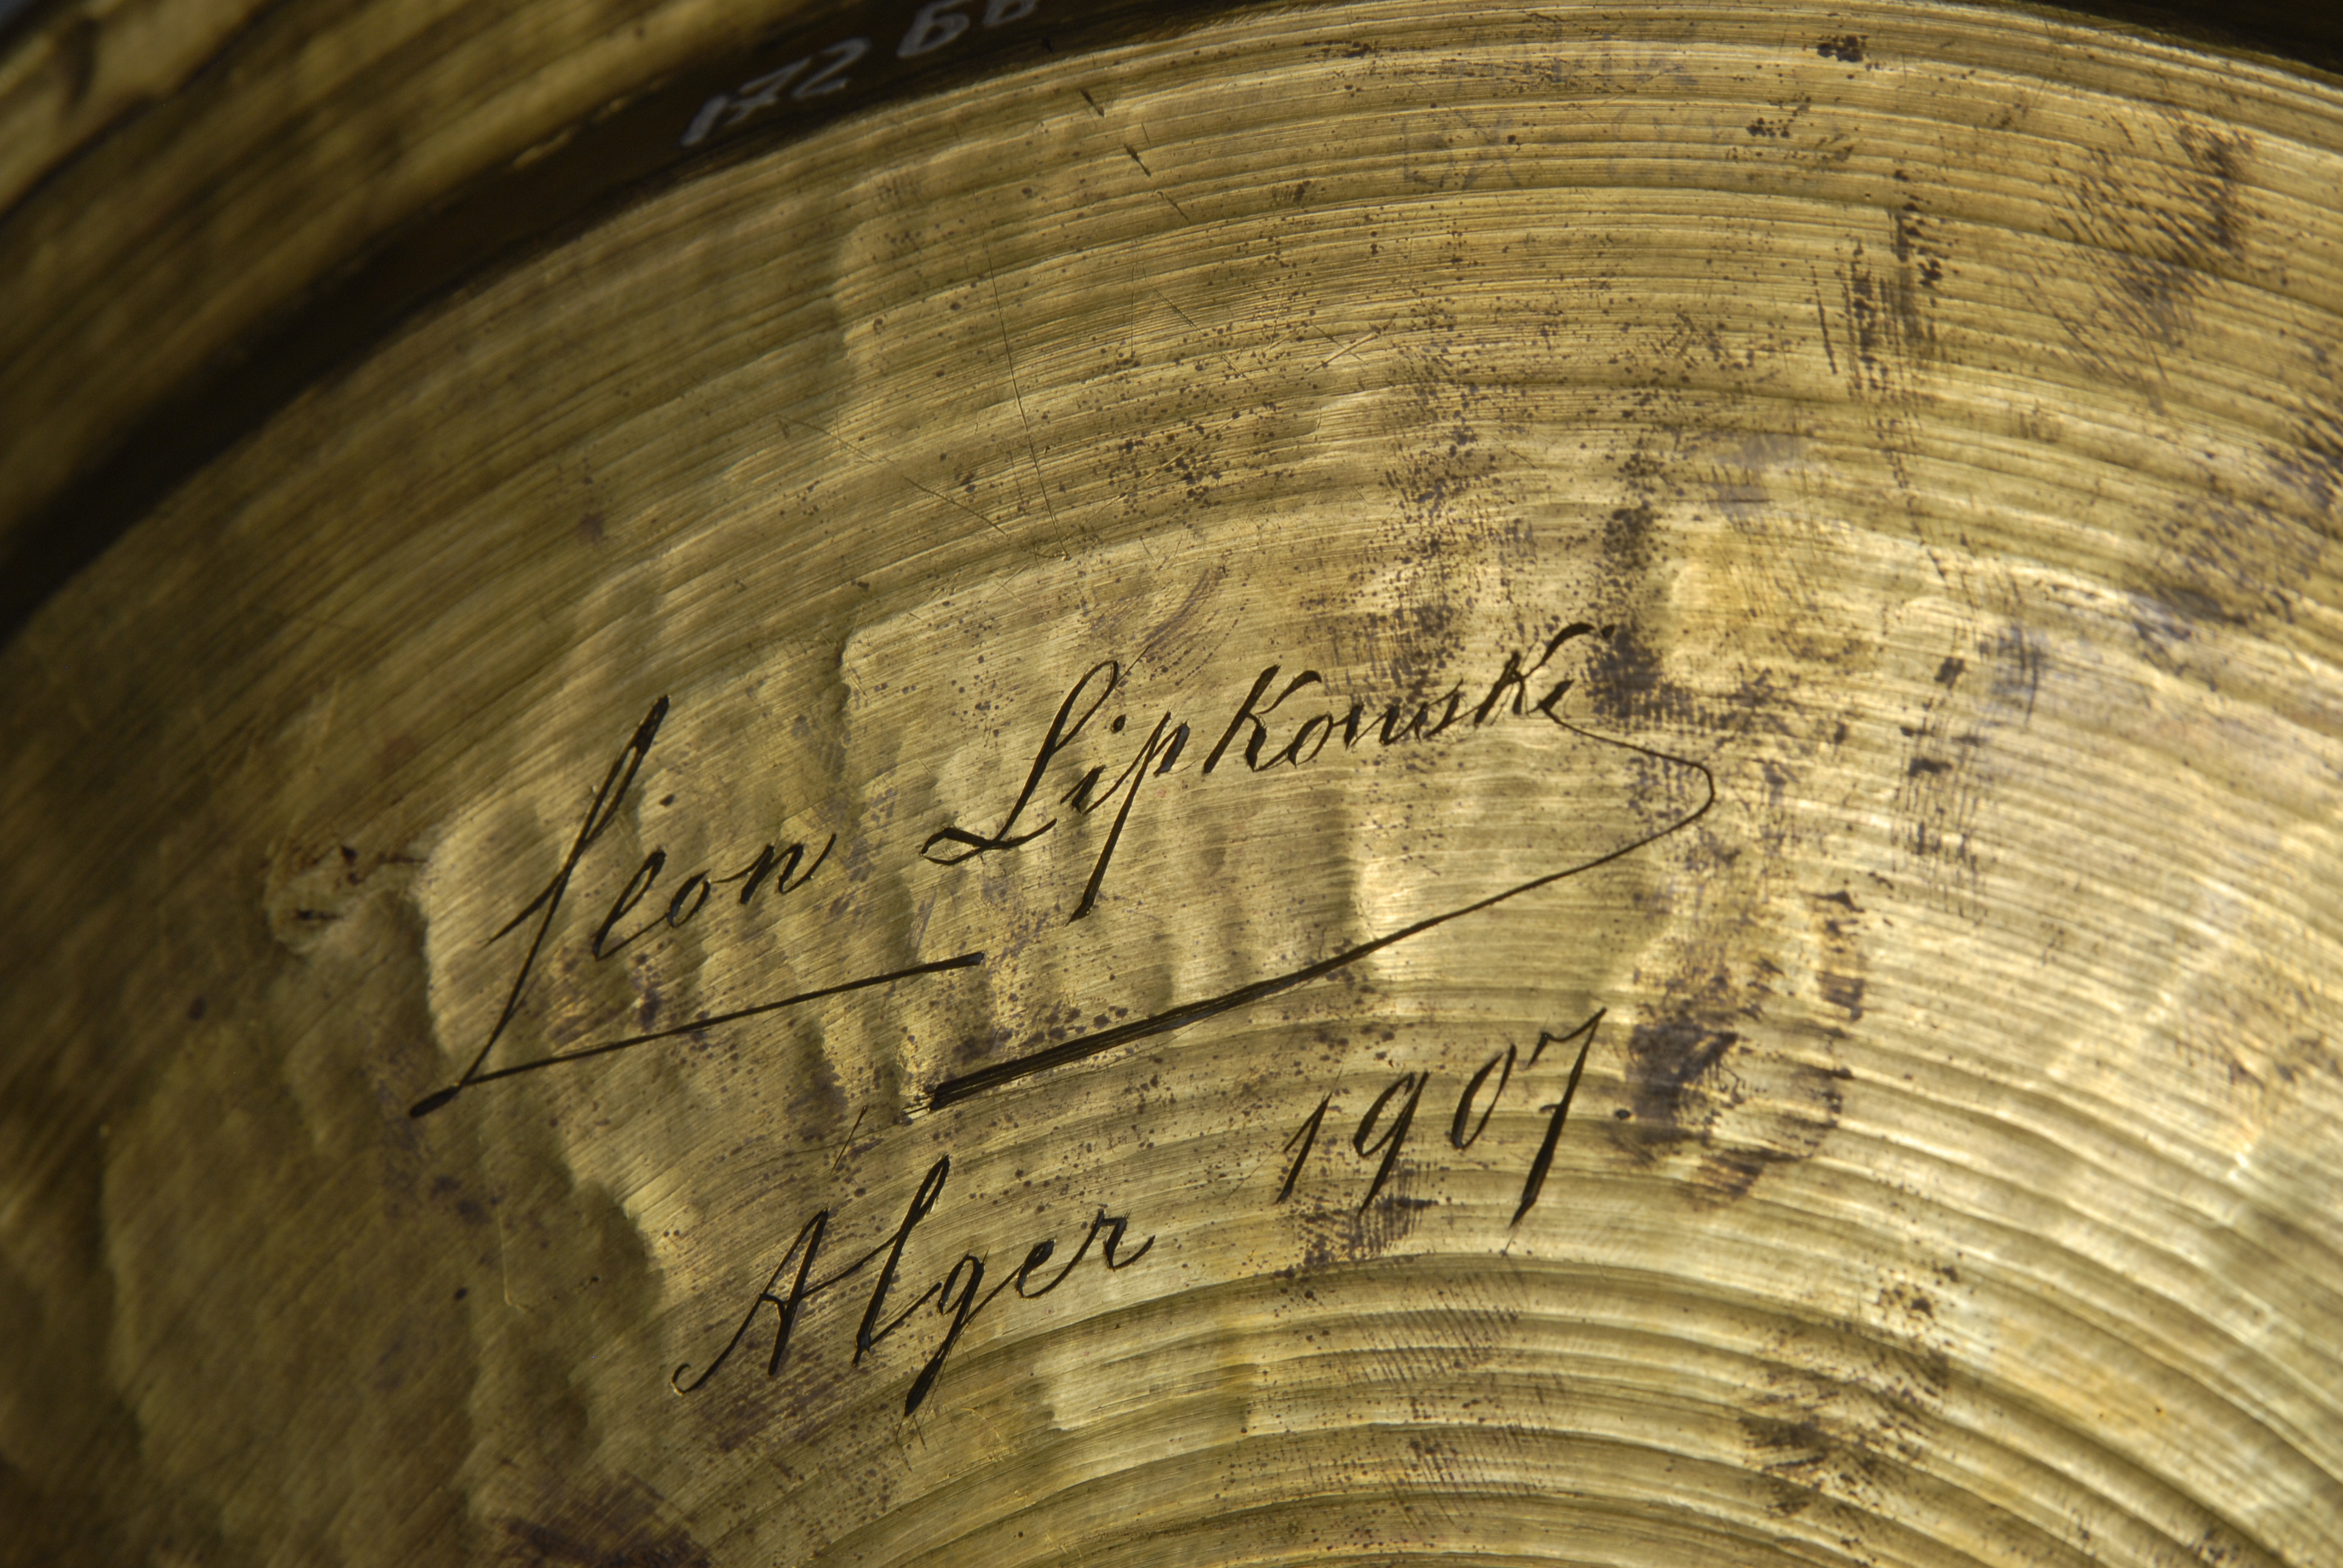 172 66
Leon Lipkowski
Alger 1907